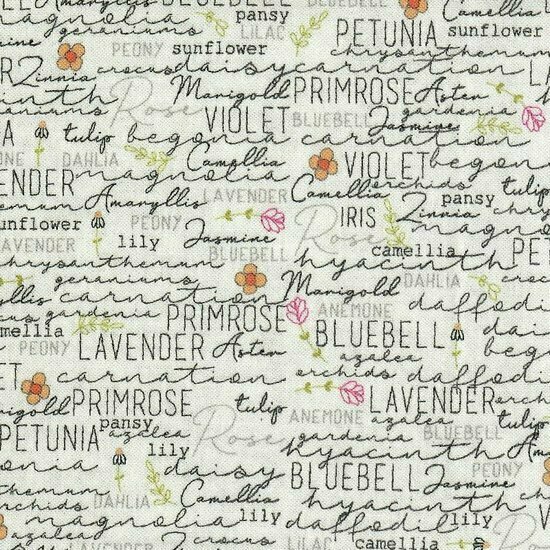 pansy Camellia
magnolia BLUEBELL
geraniums LILAC PETUNIA sunflower
PEONY sunflower chrysanthemum
Zinnia crocus daisy carnation
Marigold PRIMROSE Aster
hyacinth Rose gardenia
geraniums VIOLET BLUEBELL Jasmine
tulip begonia carnation
DAHLIA Camellia VIOLET begonia
magnolia orchids
LAVENDER Amaryllis LAVENDER Camellia pansy tulip
sunflower PEONY Rose IRIS Zinnia
LAVENDER lily Jasmine camellia magnolia
chrysanthemum hyacinth PETUNIA
geraniums Marigold DAHLIA
carnation daffodil
gardenia PRIMROSE ANEMONE
camellia BLUEBELL
PEONY LAVENDER Aster azalea
carnation orchids daffodil
Marigold PRIMROSE tulip LAVENDER orchids
pansy ANEMONE azalea
PETUNIA azalea Rose gardenia BLUEBELL
lily hyacinth
daisy BLUEBELL Jasmine PEONY
DAHLIA Camellia hyacinth
magnolia lily daffodil lily
azalea crocus orchids camellia